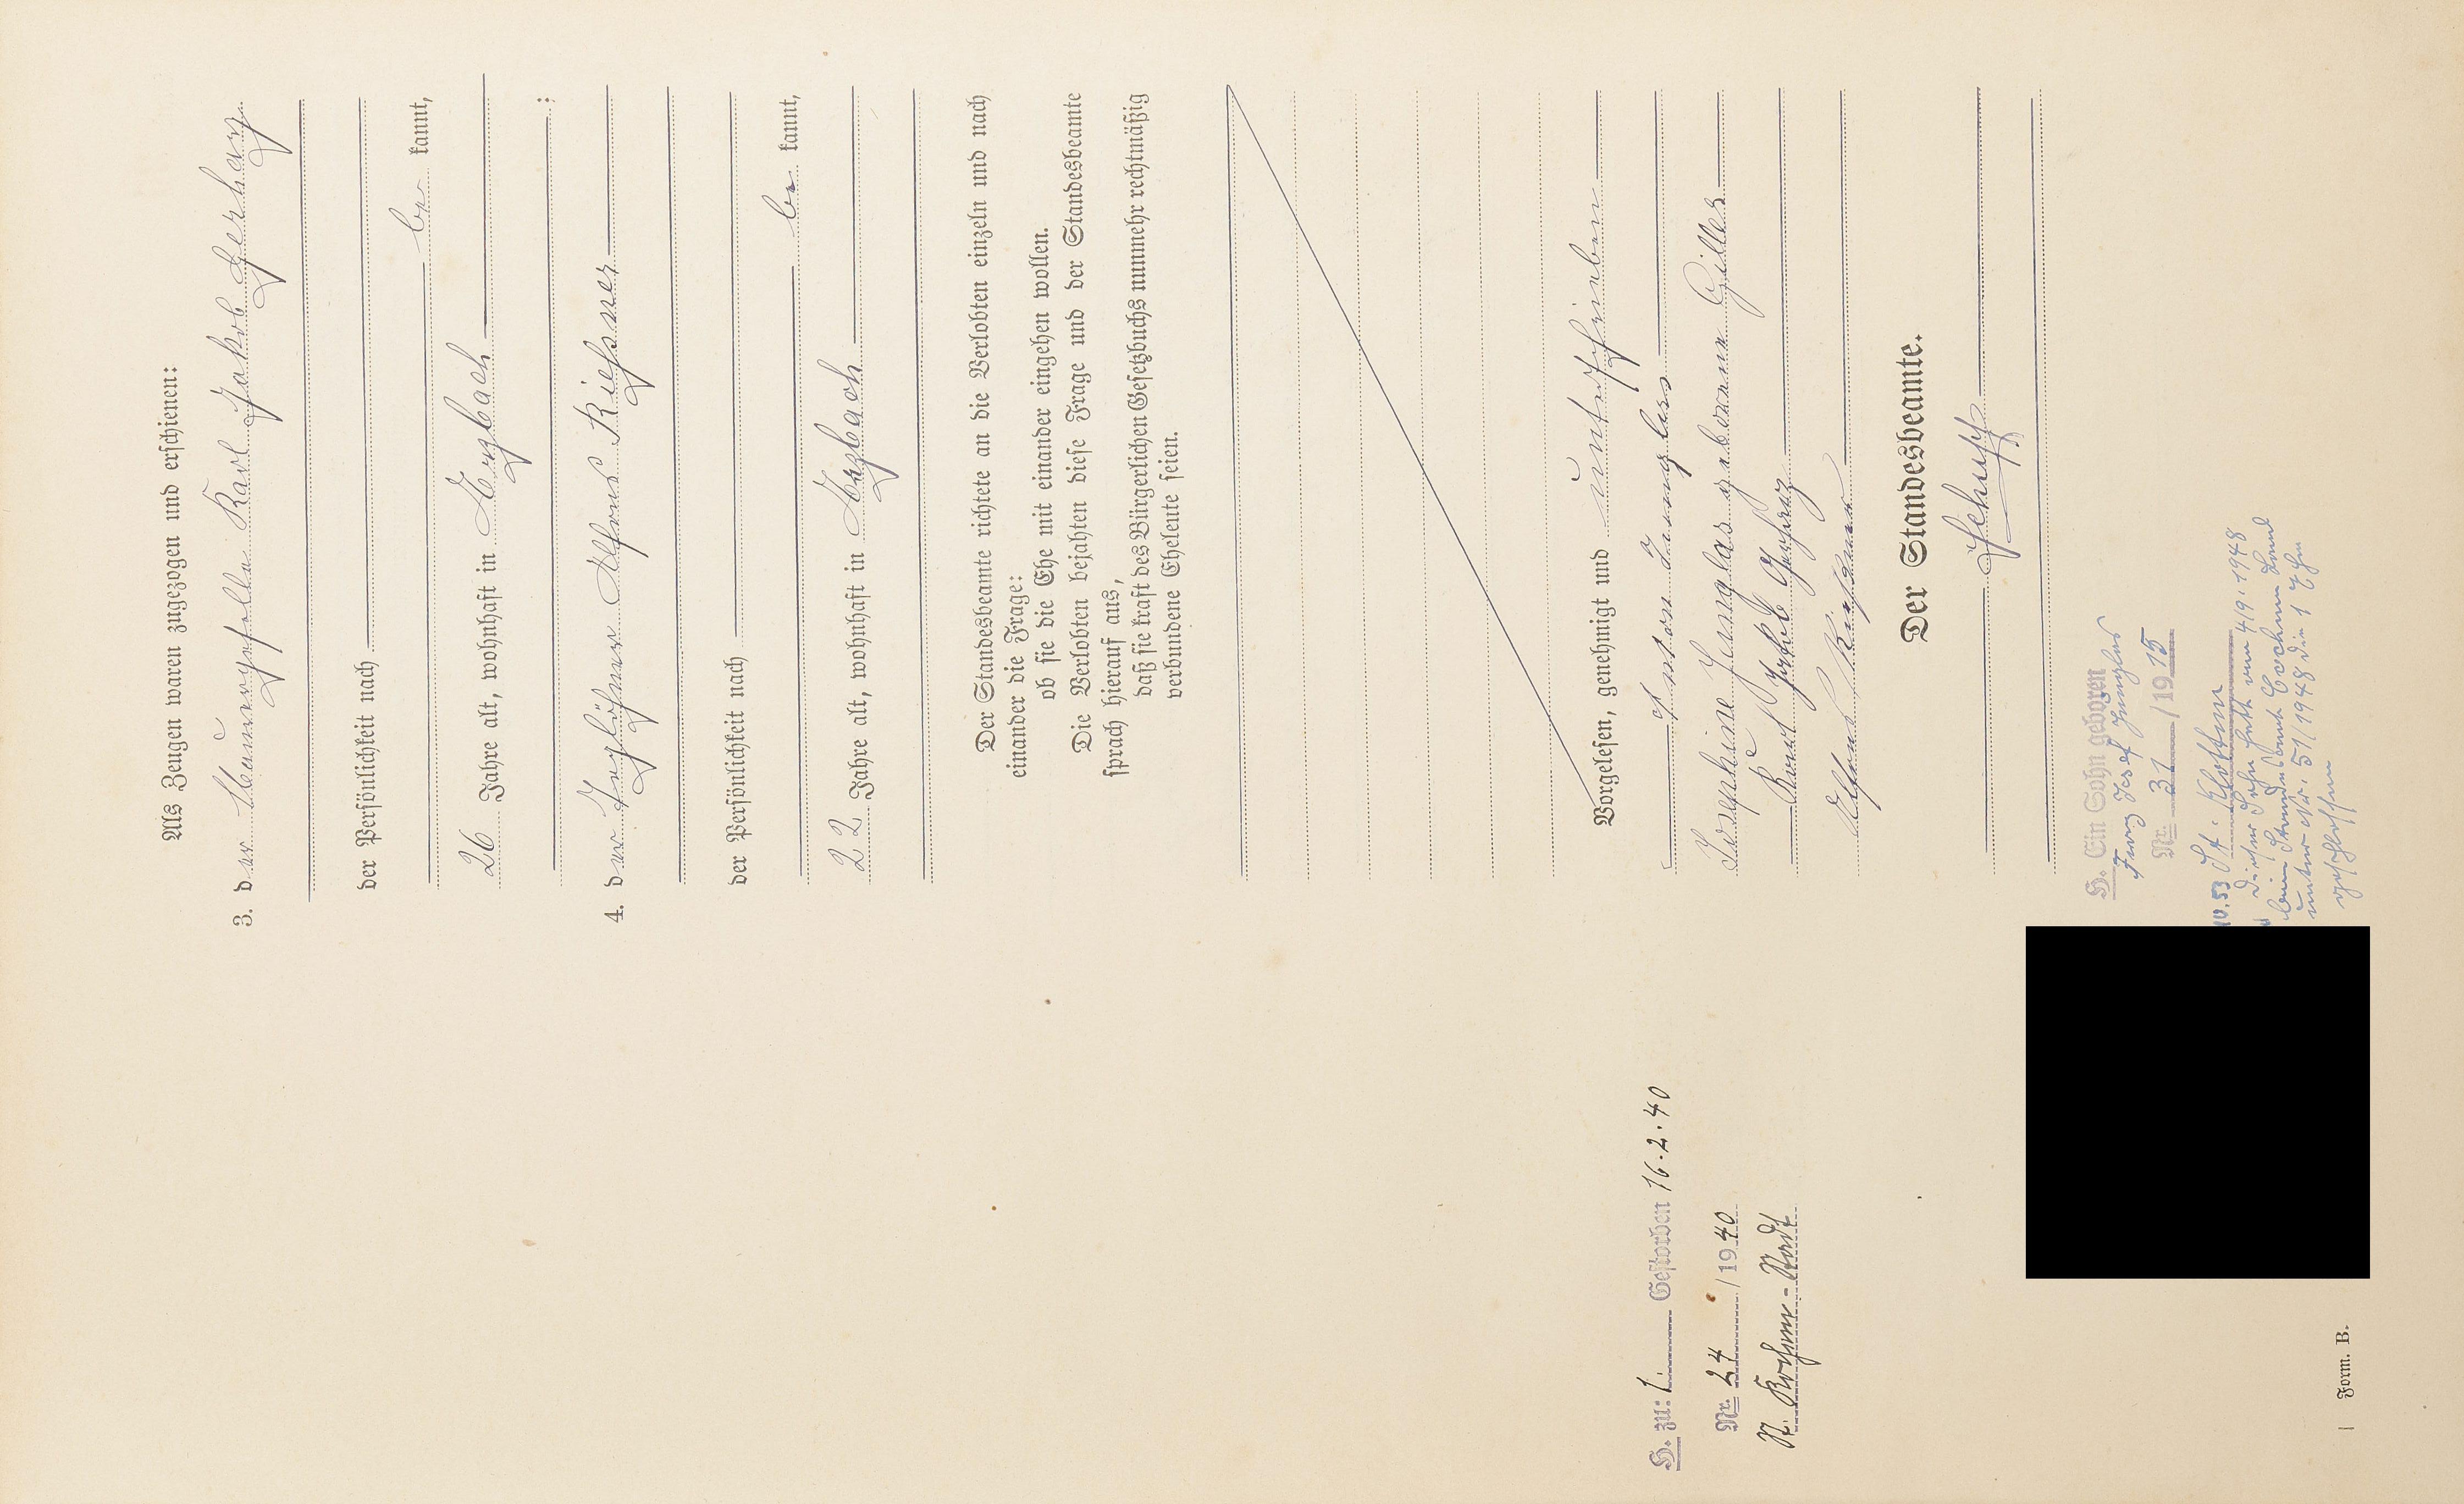 Als Zeugen waren zugezogen und erschienen:
3. der Karl Jakob Gerharz
der Persönlichkeit nach
be kannt,
26 Jahre alt, wohnhaft in
;
4. der Taglöhner Alfons Kiessner
der Persönlichkeit nach
be kannt,
22 Jahre alt, wohnhaft in
Der Standesbeamte richtete an die Verlobten einzeln und nach
einander die Frage:
ob sie die Ehe mit einander eingehen wollen.
Die Verlobten bejahten diese Frage und der Standesbeamte
sprach hierauf aus,
daß sie kraft des Bürgerlichen Gesetzbuchs nunmehr rechtmäßig
verbundene Eheleute seien.
Vorgelesen, genehmigt und unterschrieben
Anton Junglas
Josephine Junglas geborene Gilles
Karl Jakob Gerharz
Alfons
Der Standesbeamte.
H. Ein Sohn geboren
Josef Junglas
Nr. 31 / 1915
St. Klotten
Dieser Sohn hat am 4.9.1948
beim Standesamt Cochem Land
unter Nr. 51/1948 die 1 Ehe
geschlossen
H. zu: 1. Gestorben 16.2.40
Nr. 24 / 1940
St. Kochem-Stadt
Form. B.